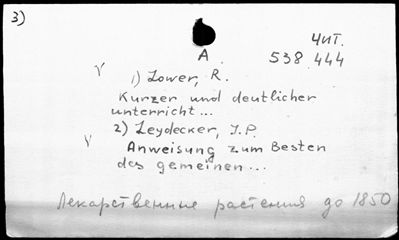 3)
Чит.
A
538 444
V
1) Lower, R.
Kurzer und deutlicher
unterricht...
2) Leydecker, J.P.
V
Anweisung zum Besten
des gemeinen...
Лекарственные растения до 1850